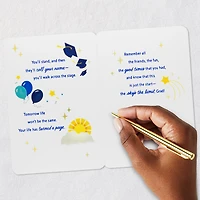 You'll stand, and then
they'll call your name—
you'll walk across the stage.
Tomorrow life
won't be the same.
Your life has turned a page.
Remember all
the friends, the fun,
the good times that you had,
and know that this
is just the start—
the sky's the limit Grad!